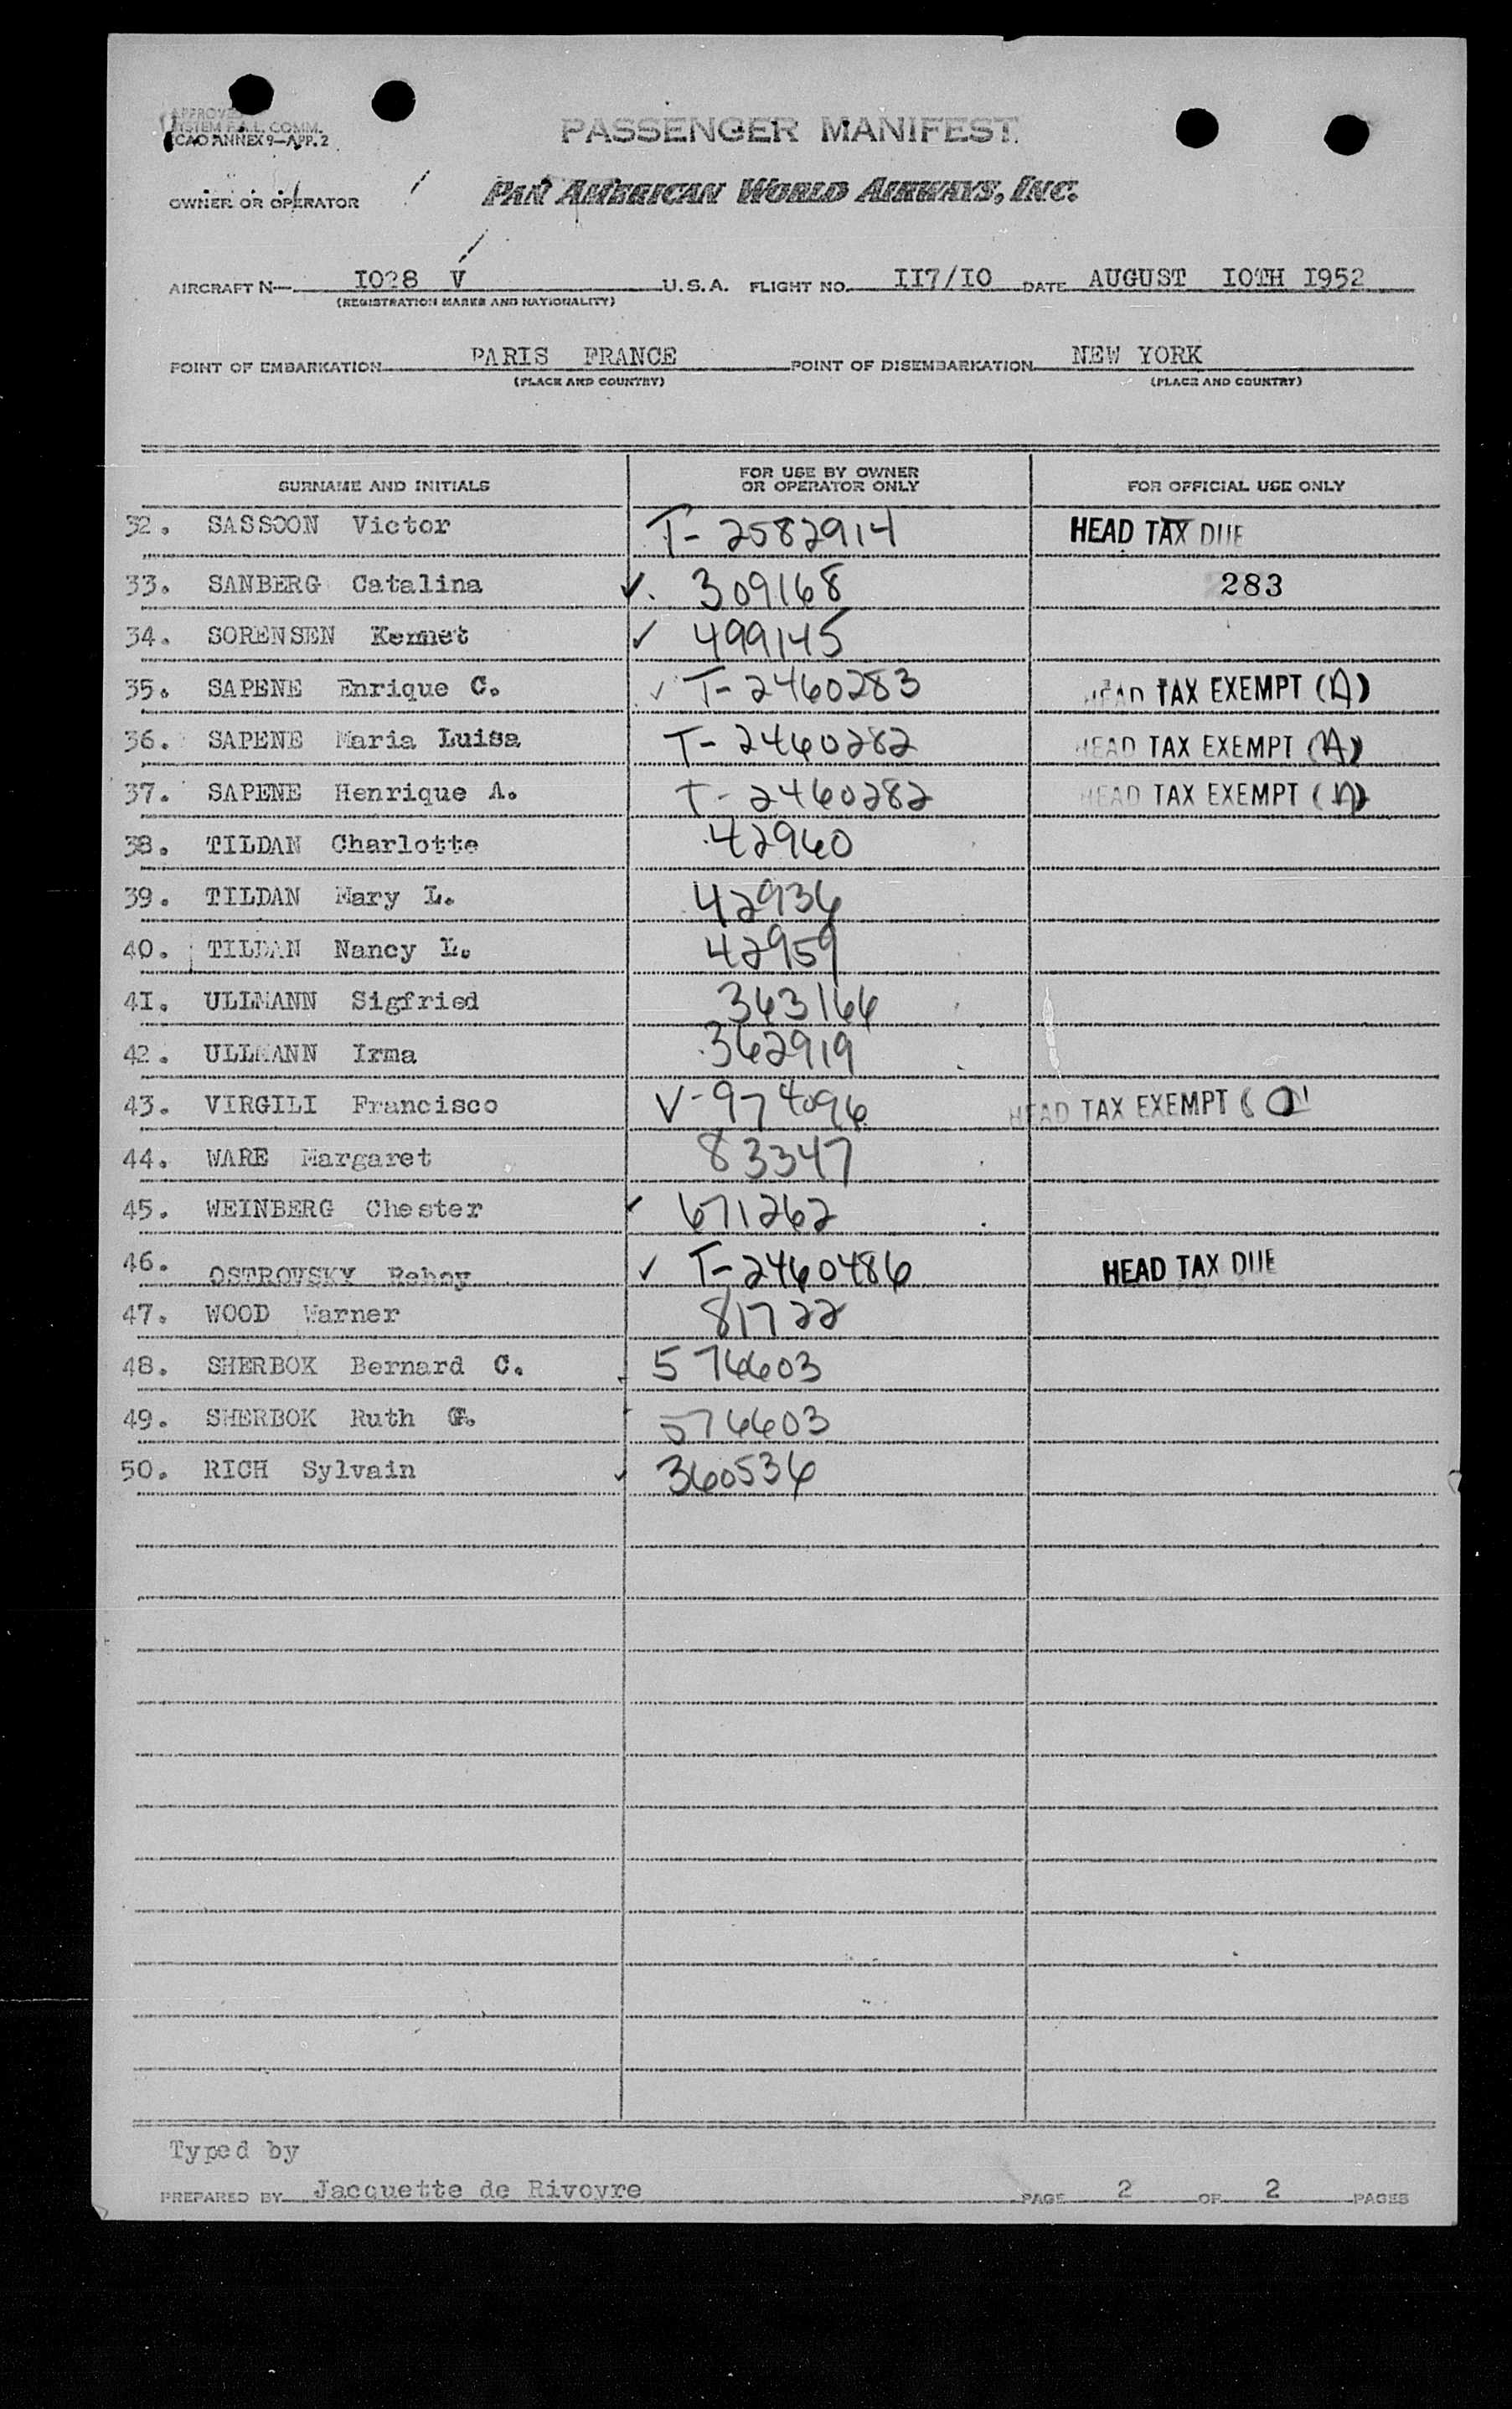 APPROVED
SYSTEM F.A.L. COMM.
ICAO ANNEX 9—APP. 2
PASSENGER MANIFEST
OWNER OR OPERATOR PAN AMERICAN WORLD AIRWAYS, INC.
AIRCRAFT N— I028 V U.S.A. FLIGHT NO. II7/I0 DATE AUGUST I0TH I952
(REGISTRATION MARKS AND NATIONALITY)
POINT OF EMBARKATION PARIS FRANCE POINT OF DISEMBARKATION NEW YORK
(PLACE AND COUNTRY) (PLACE AND COUNTRY)
SURNAME AND INITIALS FOR USE BY OWNER OR OPERATOR ONLY FOR OFFICIAL USE ONLY
32. SASSOON Victor T- 2582914 HEAD TAX DUE
33. SANBERG Catalina ✓. 309168 283
34. SORENSEN Kennet ✓ 499145
35. SAPENE Enrique C. ✓ T- 2460283 HEAD TAX EXEMPT (A)
36. SAPENE Maria Luisa T- 2460282 HEAD TAX EXEMPT (A)
37. SAPENE Henrique A. T- 2460282 HEAD TAX EXEMPT (A)
38. TILDAN Charlotte 42960
39. TILDAN Mary L. 42936
40. TILDAN Nancy L. 42959
4I. ULLMANN Sigfried 363166
42. ULLMANN Irma 362919
43. VIRGILI Francisco V-974096 HEAD TAX EXEMPT
44. WARE Margaret 83347
45. WEINBERG Chester ✓ 671262
46. OSTROVSKY ✓ T-2460486 HEAD TAX DUE
47. WOOD Warner 81722
48. SHERBOK Bernard C. 576603
49. SHERBOK Ruth G. 576603
50. RICH Sylvain ✓ 360536
Typed by
PREPARED BY Jacquette de Rivoyre PAGE 2 OF 2 PAGES